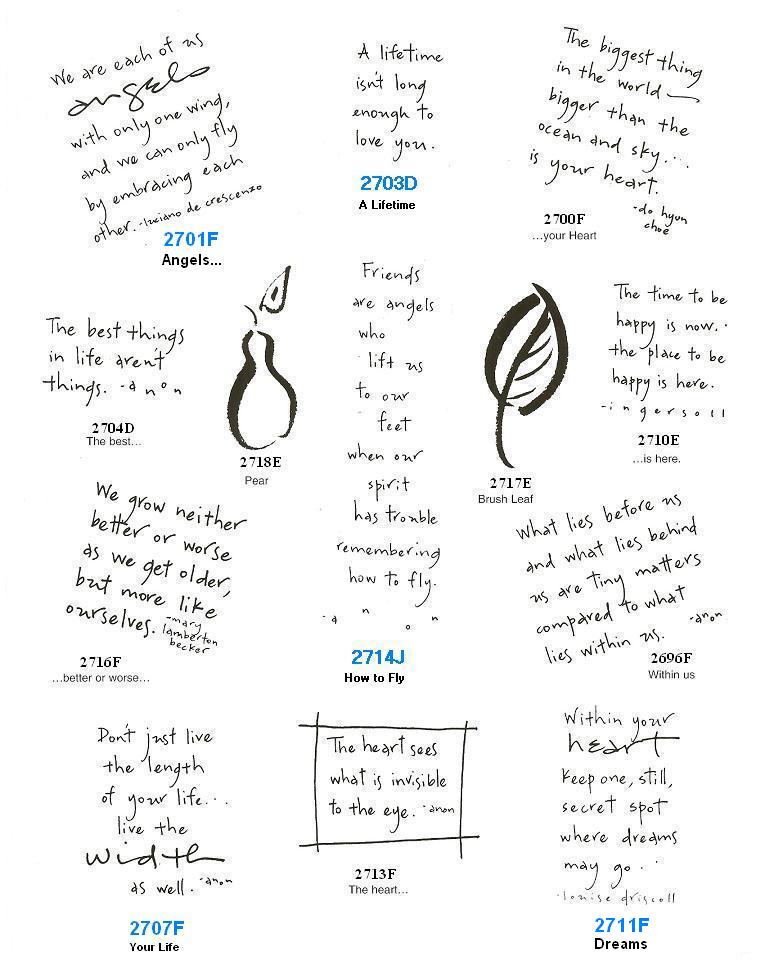 We are each of us
angels
with only one wing,
and we can only fly
by embracing each
other. -luciano de crescenzo
2701F
Angels...
A lifetime
isn't long
enough to
love you.
2703D
A Lifetime
The biggest thing
in the world —
bigger than the
ocean and sky....
is your heart.
-do hyun
choe
2700F
...your Heart
The best things
in life aren't
things. -anon
2704D
The best...
2718E
Pear
Friends
are angels
who
lift us
to our
feet
when our
spirit
has trouble
remembering
how to fly.
-anon
2714J
How to Fly
2717E
Brush Leaf
The time to be
happy is now..
the place to be
happy is here.
-ingersoll
2710E
...is here.
We grow neither
better or worse
as we get older,
but more like
ourselves.
-mary
lamberton
becker
2716F
...better or worse...
What lies before us
and what lies behind
us are tiny matters
compared to what
lies within us. -anon
2696F
Within us
Don't just live
the length
of your life...
live the
width
as well. -anon
2707F
Your Life
The heart sees
what is invisible
to the eye. -anon
2713F
The heart...
Within your
heart
keep one, still,
secret spot
where dreams
may go..
-louise driscoll
2711F
Dreams